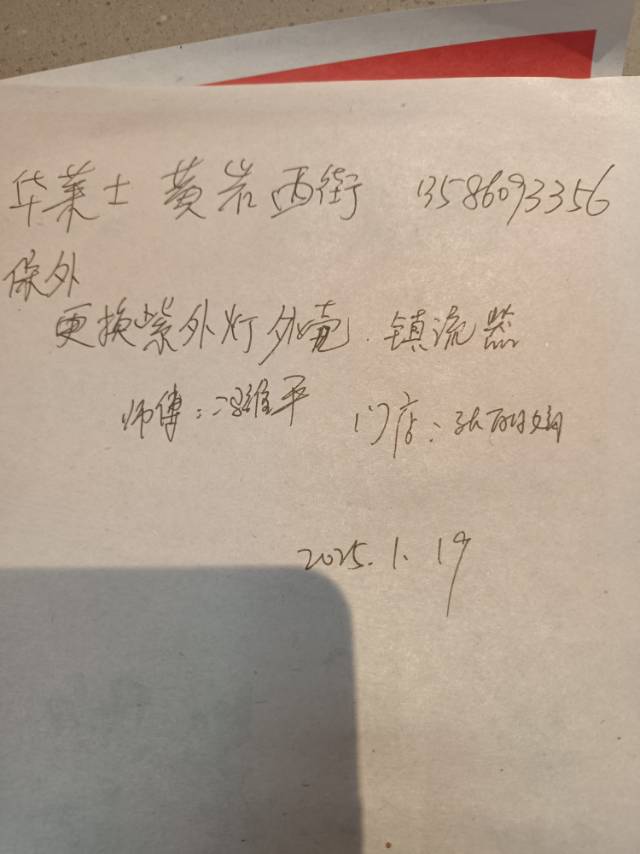 华莱士 黄岩西街 13586093356
保外
更换紫外灯外壳.镇流器
师傅:冯维平 门店:张
2025.1.19